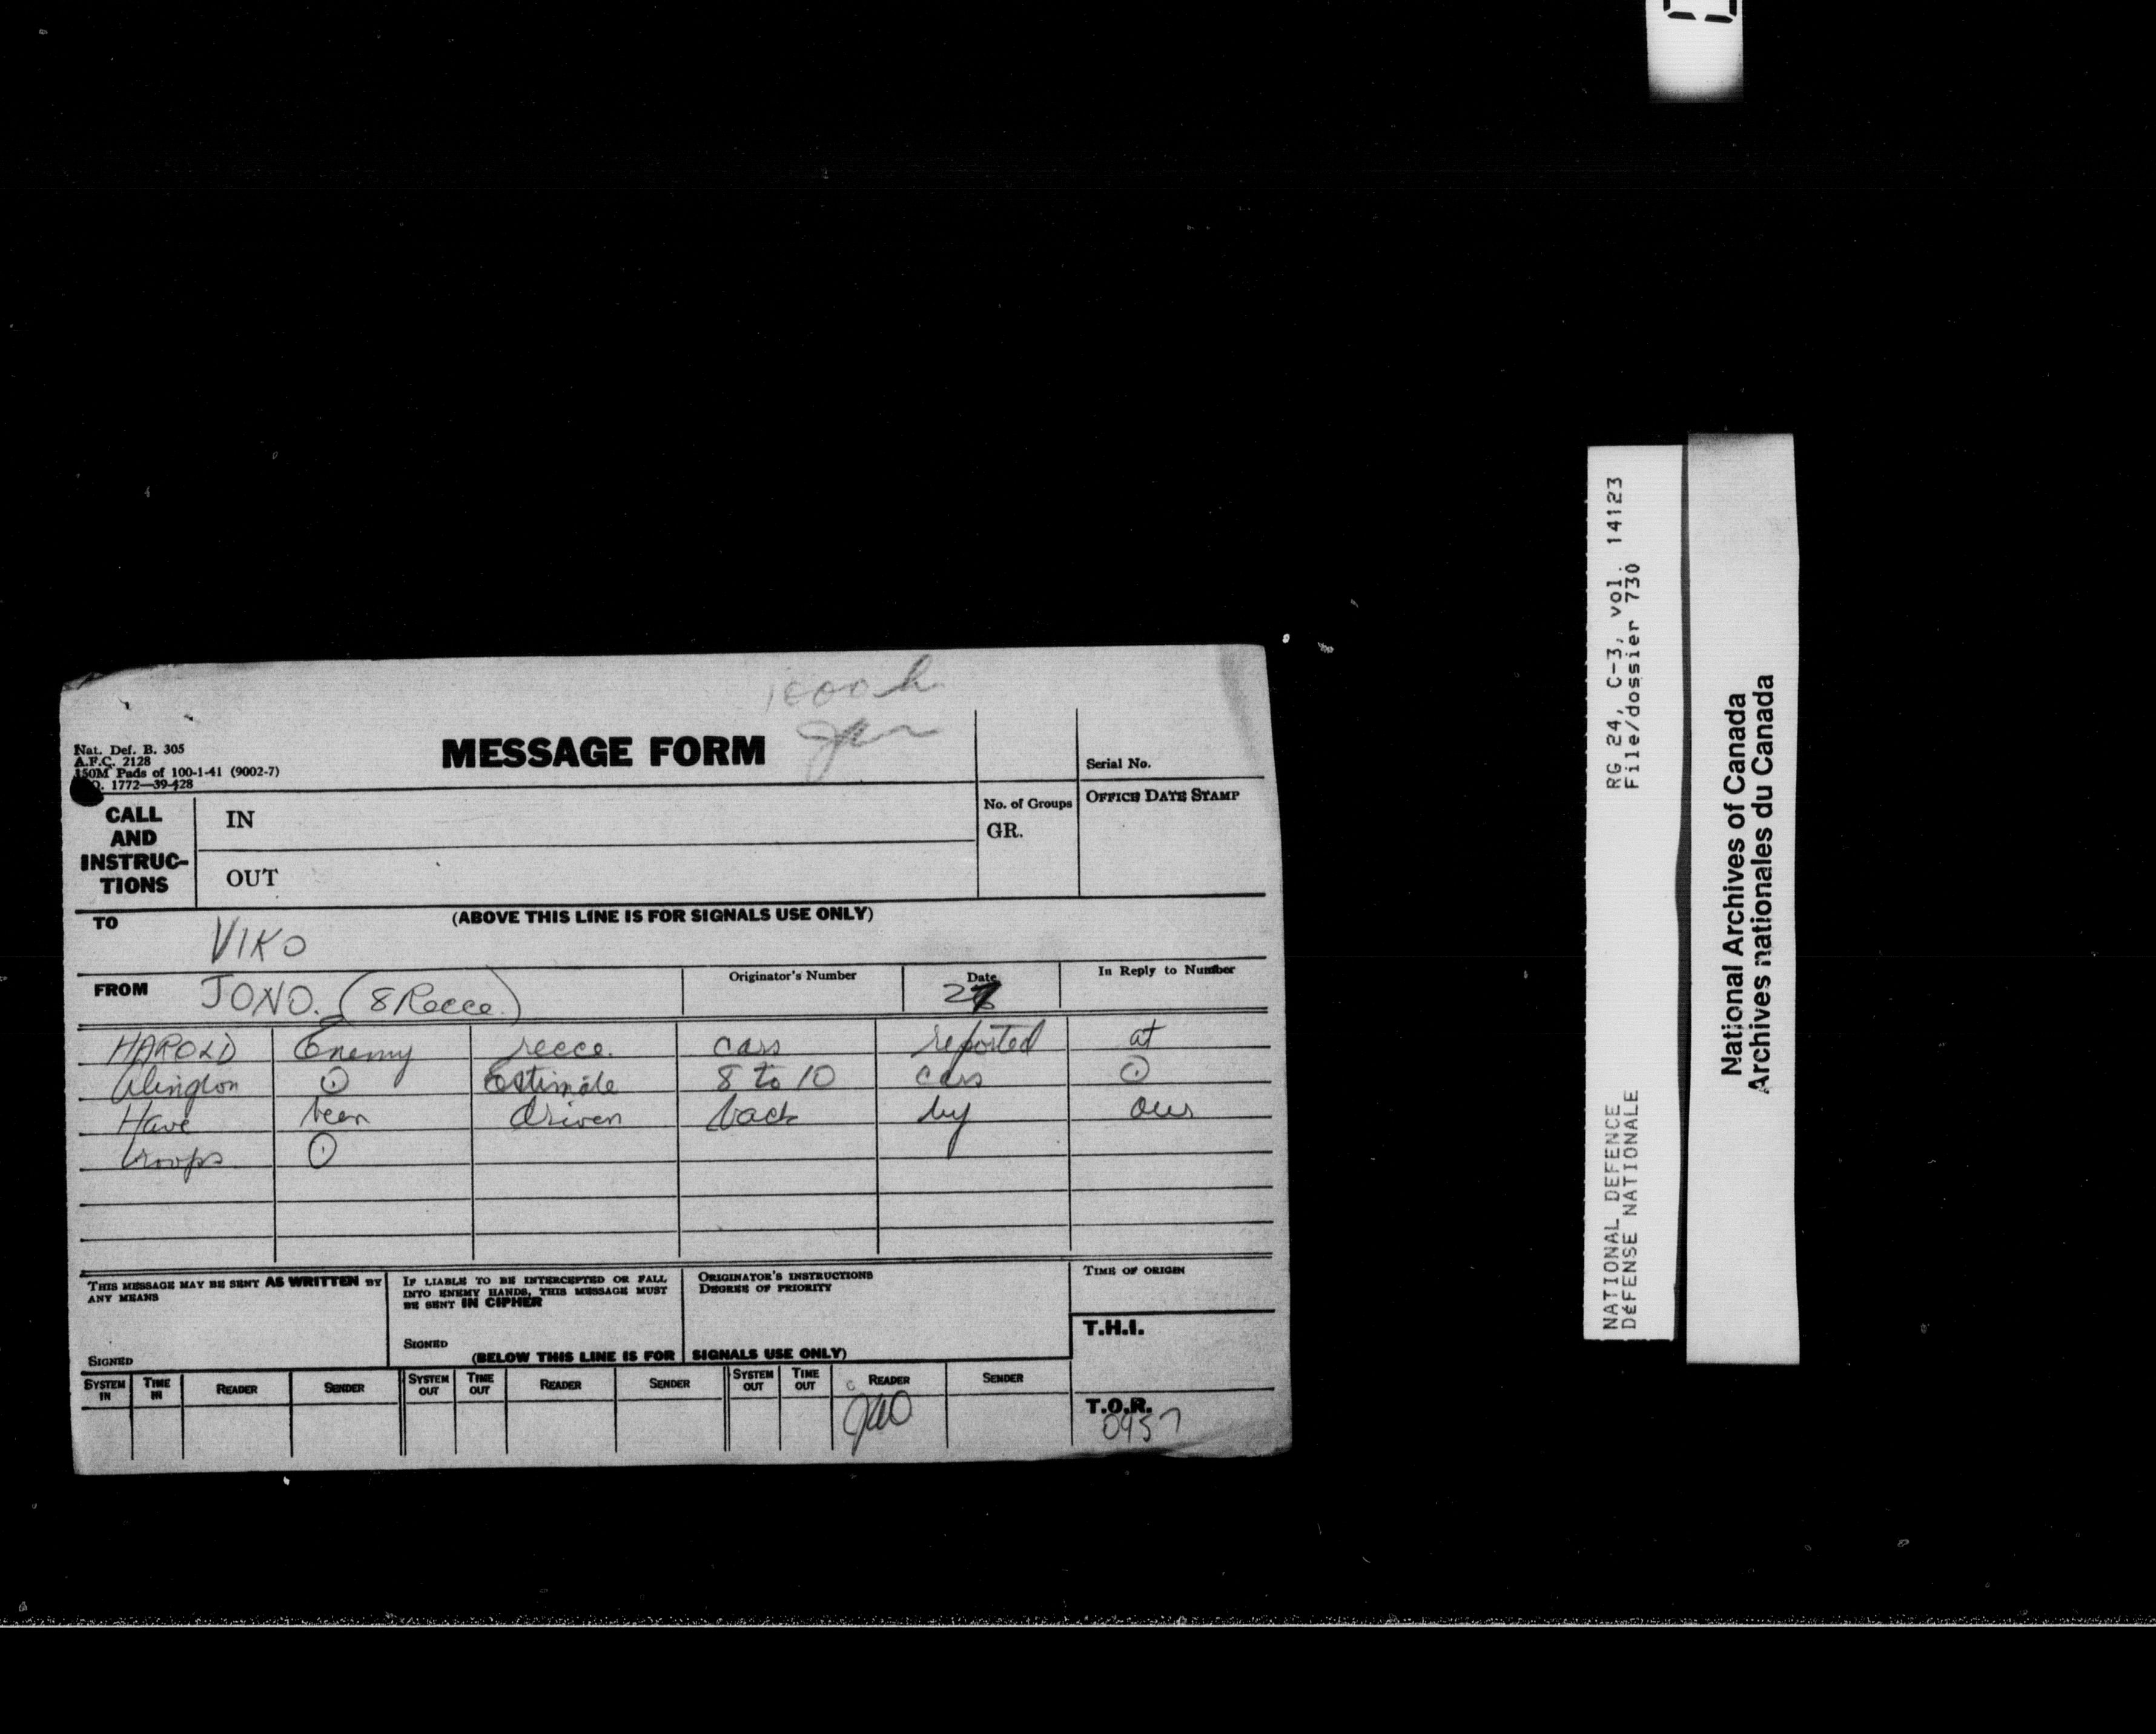 1000 h
Nat. Def. B. 305
A.F.C. 2128
350M Pads of 100-1-41 (9002-7)
1772—39-428
MESSAGE FORM
Serial No.
CALL AND INSTRUC-TIONS
IN
OUT
No. of Groups
GR.
OFFICE DATE STAMP
(ABOVE THIS LINE IS FOR SIGNALS USE ONLY)
TO VIKO
FROM JONO. (8 Recce.)
Originator's Number
Date
27
In Reply to Number
HAROLD Enemy recce. cars reported at
Alington ⊙ Estimate 8 to 10 cars ⊙
Have been driven back by our
troops ⊙
THIS MESSAGE MAY BE SENT AS WRITTEN BY
ANY MEANS
SIGNED
IF LIABLE TO BE INTERCEPTED OR FALL
INTO ENEMY HANDS, THIS MESSAGE MUST
BE SENT IN CIPHER
SIGNED
ORIGINATOR'S INSTRUCTIONS
DEGREE OF PRIORITY
TIME OF ORIGIN
T.H.I.
(BELOW THIS LINE IS FOR SIGNALS USE ONLY)
SYSTEM IN TIME IN READER SENDER SYSTEM OUT TIME OUT READER SENDER SYSTEM OUT TIME OUT READER SENDER
T.O.R.
0957
RG 24, C-3, vol. 14123
File/dossier 730
NATIONAL DEFENCE
DéFENSE NATIONALE
National Archives of Canada
Archives nationales du Canada